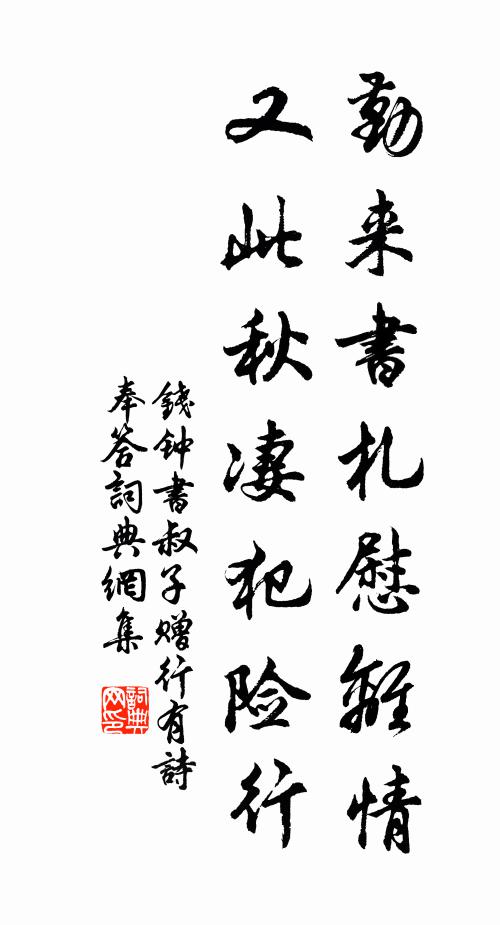 勤来書札慰離情
又此秋凄犯险行
錢钟書叔子赠行有詩
奉答詞典網集
詞典网印